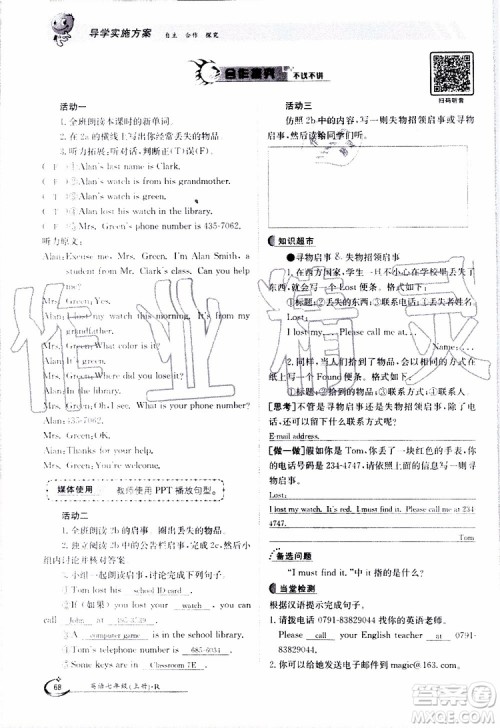 导学实施方案 自主 合作 探究
合作探究 不议不讲
扫码听音
活动一
1. 全班朗读本课时的新单词。
2. 在2a的横线上写出你经常丢失的物品
3. 听力拓展:听录音,判断正(T)误(F)。
① Alan's last name is Clark.
② Alan's watch is from his grandmother.
③ Alan lost his watch in the library.
④ Mrs. Green's phone number is 435-7062.
听力原文:
Alan: Excuse me. Mrs. Green. I'm Alan Smith, a
student from Mr. Clark's class. Can you help
me?
Mrs. Green: Yes.
Alan: I lost my watch this morning. It's from my
grandfather.
Mrs. Green: What color is it?
Alan: It's green.
Mrs. Green: Where did you lose it?
Alan: In the library.
Mrs. Green: Oh, I see. What's your phone number?
Alan: 435-7062.
Alan: Thanks for your help.
Mrs. Green: You're welcome.
媒体使用 教师使用PPT播放句型。
活动二
1. 全班朗读2b的启事 圈出丢失的物品
2. 独立阅读2b中的公告栏启事,完成2c,小
组内讨论并核对答案
3. 小组一起朗读启事,讨论完成下列句子。
① Tom lost his school ID card.
② If(如果) you lost your watch, you can
call John at 495-3539.
③ A computer game is in the school library.
④ Tom's telephone number is 685-6034.
⑤ You can find
活动三
仿照2b中的内容,写一则失物招领启事或寻
物启事,读给同学们听。
知识超市
寻物启事 & 失物招领启事
1. 在西方国家,人们一旦不小心在学校里丢失了
东西,就会写一个Lost便条。格式如下:
①标题+②丢失的东西+③联系电话+④丢失者姓名
Lost:
I lost my ... Please call me at ...
Name: ...
2. 同样,当人们拾到了物品,想要寻找失主时,也
会写一个Found便条。格式如下:
①标题+②拾到的物品+③联系方式+④联系人
[思考]不管是寻物启事还是失物招领启事,除了
写电话,还可以写什么联系方式呢?
E-mail address.
[做一做]假如你是Tom,你丢了一块红色的手表,
你的电话号码是234-4747,请据此信息写一则
寻物启事。
Lost:
I lost my watch. It's red. I must find it. Please call me at 234-
4747.
Tom
备选问题
"I must find it."中it指的是什么?
当堂检测
根据汉语提示完成句子。
1. 请拨打电话0791-83829044找我的英语老师。
Please call my English teacher at 0791-
83829044
2. 请发送电子邮件至magic@163.com或致电
68 英语七年级(上册)·R